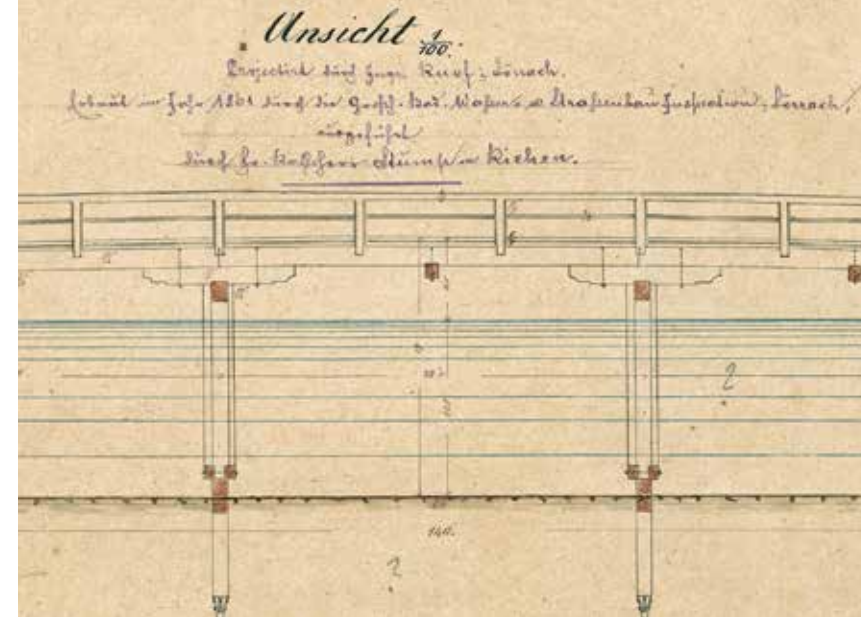 Ansicht 1/100.
Projectirt durch Ingr. Knof, Lörrach.
Erbaut im Jahr 1861 durch die Großh. Bad. Wasser- u Straßenbau Inspection, Lörrach,
ausgeführt
durch Stump in Riehen.
2
140.
2